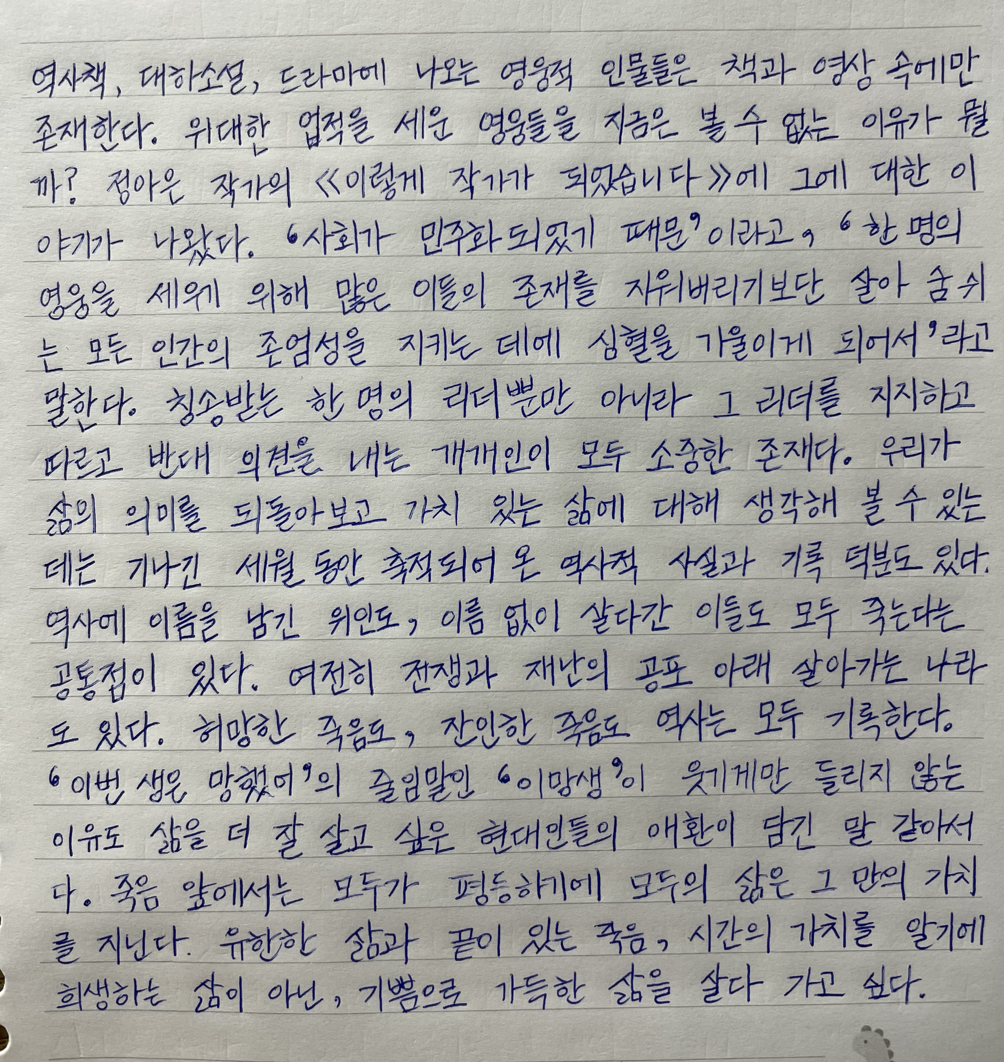 역사책, 대하소설, 드라마에 나오는 영웅적 인물들은 책과 영상 속에만
존재한다. 위대한 업적을 세운 영웅들을 지금은 볼 수 없는 이유가 뭘
까? 정아은 작가의 《이렇게 작가가 되었습니다》에 그에 대한 이
야기가 나왔다. ‘사회가 민주화되었기 때문’이라고, ‘한 명의
영웅을 세우기 위해 많은 이들의 존재를 지워버리기보단 살아 숨쉬
는 모든 인간의 존엄성을 지키는 데에 심혈을 기울이게 되어서’라고
말한다. 칭송받는 한 명의 리더뿐만 아니라 그 리더를 지지하고
따르고 반대 의견을 내는 개개인이 모두 소중한 존재다. 우리가
삶의 의미를 되돌아보고 가치 있는 삶에 대해 생각해 볼 수 있는
데는 기나긴 세월 동안 축적되어 온 역사적 사실과 기록 덕분도 있다.
역사에 이름을 남긴 위인도, 이름 없이 살다간 이들도 모두 죽는다는
공통점이 있다. 여전히 전쟁과 재난의 공포 아래 살아가는 나라
도 있다. 허망한 죽음도, 잔인한 죽음도 역사는 모두 기록한다.
‘이번 생은 망했어’의 줄임말인 ‘이망생’이 웃기게만 들리지 않는
이유도 삶을 더 잘 살고 싶은 현대인들의 애환이 담긴 말 같아서
다. 죽음 앞에서는 모두가 평등하기에 모두의 삶은 그 만의 가치
를 지닌다. 유한한 삶과 끝이 있는 죽음, 시간의 가치를 알기에
희생하는 삶이 아닌, 기쁨으로 가득한 삶을 살다 가고 싶다.